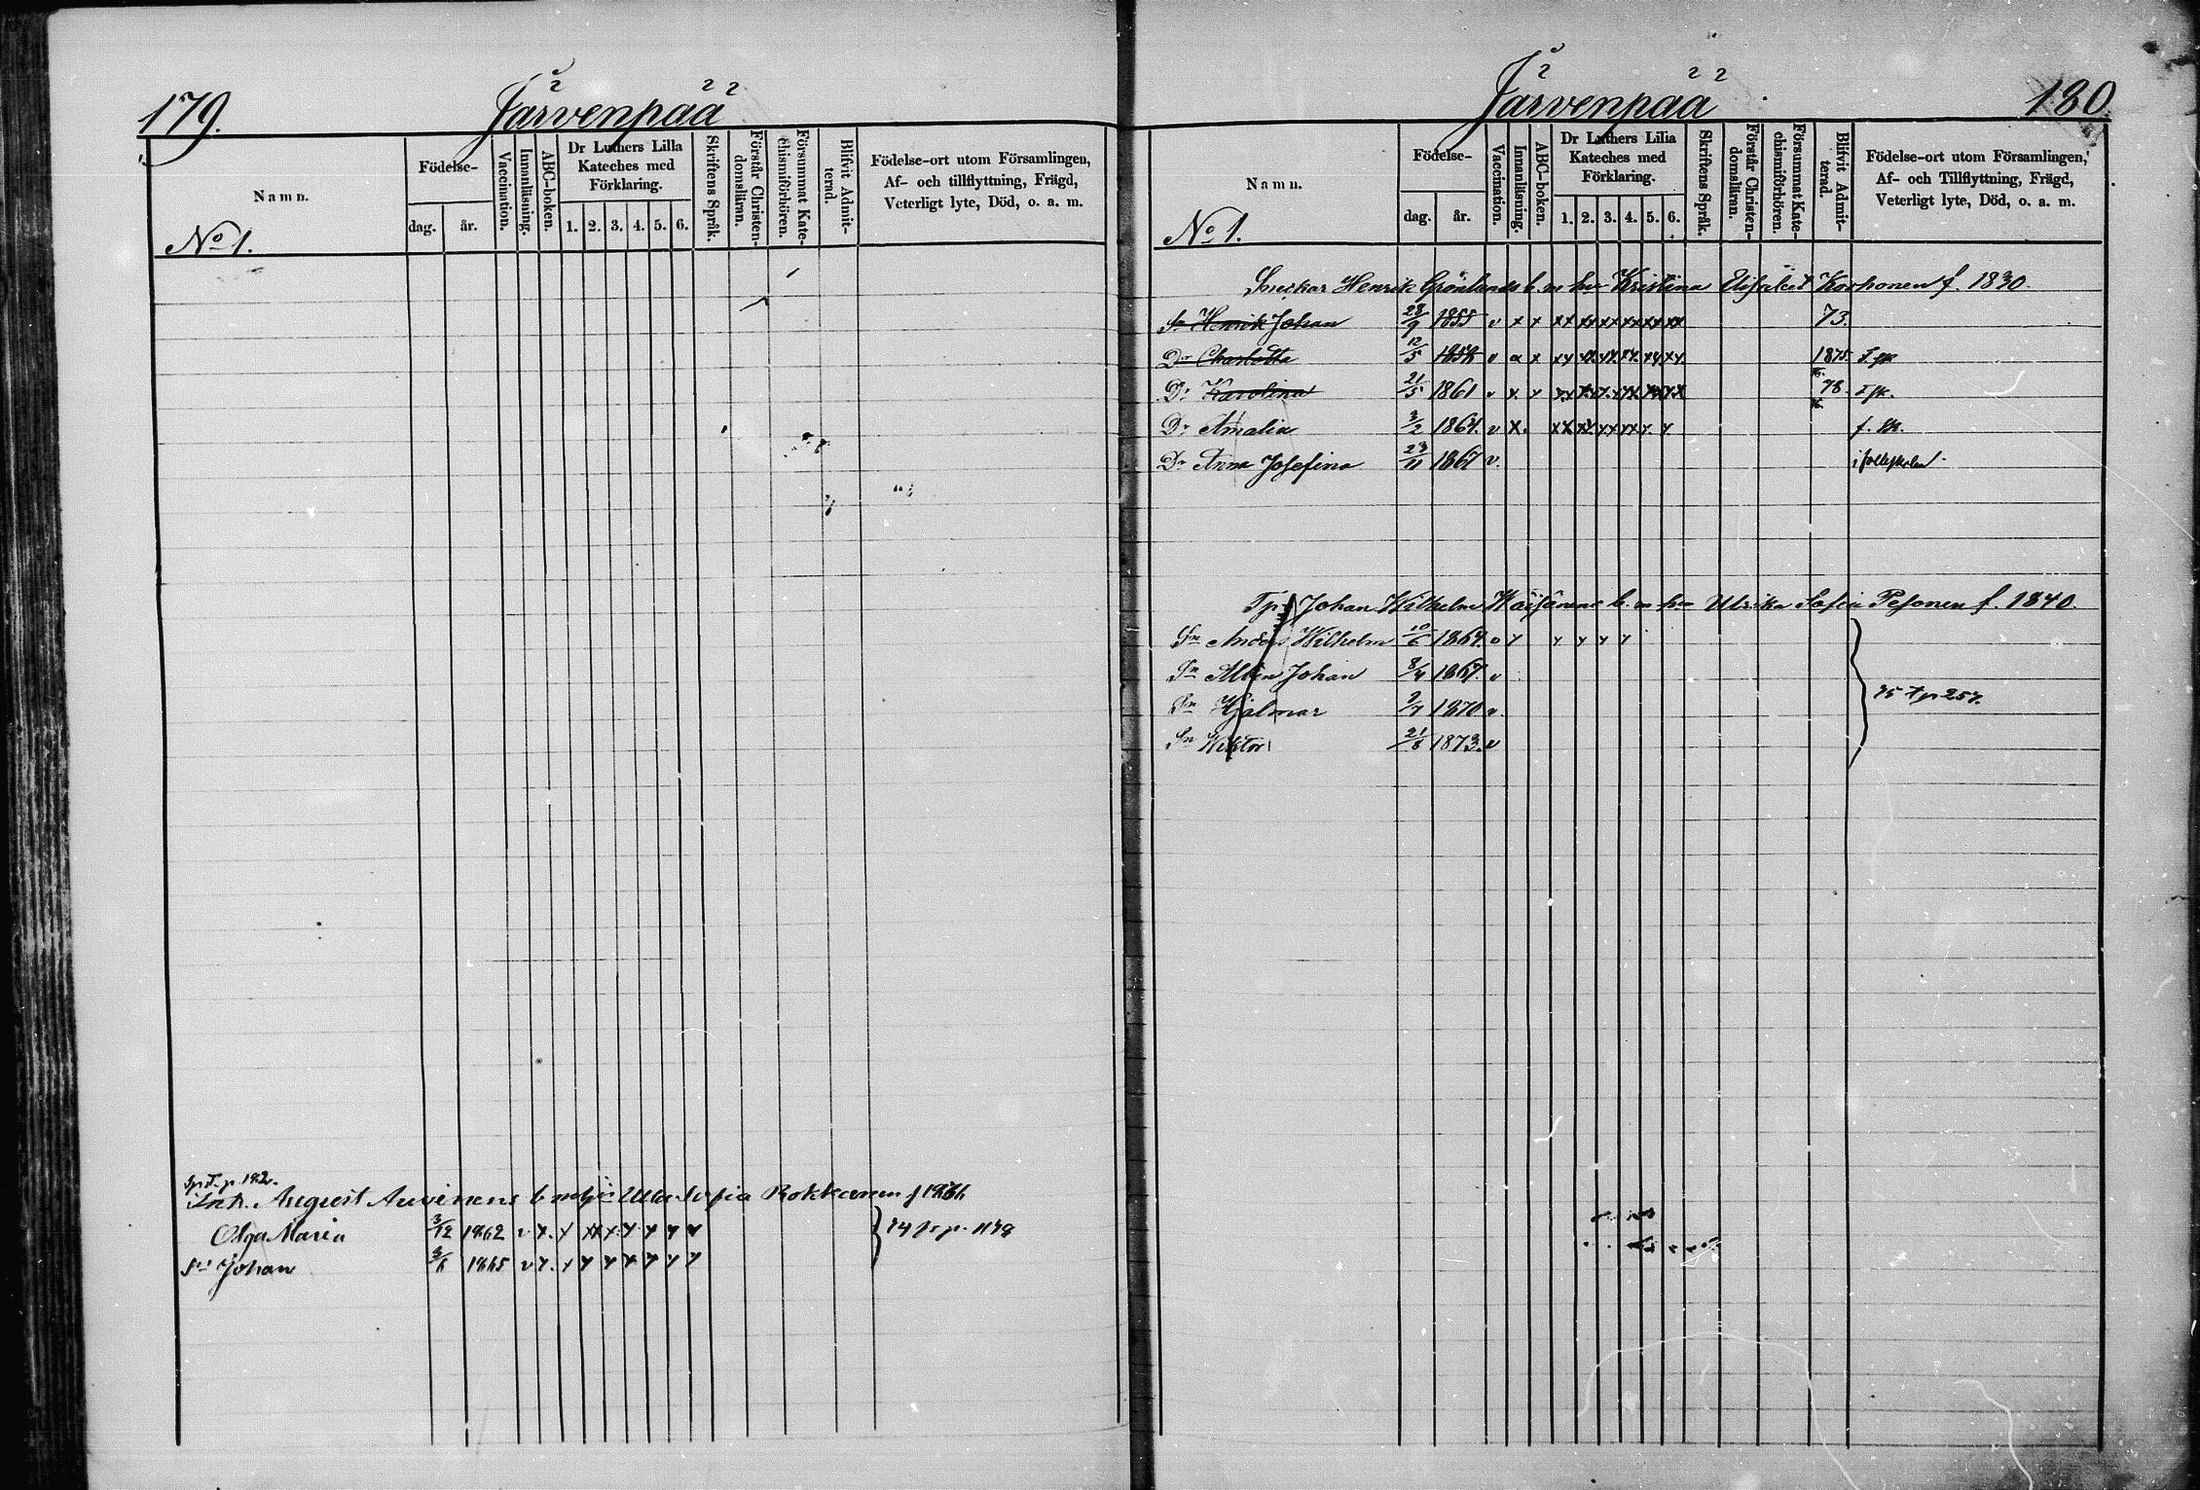 179.
Järvenpää
Namn.
Födelse-
dag.
år.
Vaccination.
Innanläsning.
ABC-boken.
Dr Luthers Lilla
Kateches med
Förklaring.
1. 2. 3. 4. 5. 6.
Skriftens Språk.
Förstår Christen-
domsläran.
Försummat Kate-
chismiförhören.
Blifvit Admit-
terad.
Födelse-ort utom Församlingen,
Af- och tillflyttning, Frägd,
Veterligt lyte, Död, o. a. m.
No 1.
August Auvinens b m Ulla Sofia Rokkanen f
Olga Maria 3/12 1862 v x x xx x x x x x
Sn Johan 3/6 1865 v x x x x x x x x
Järvenpää
180
Namn.
Födelse-
dag.
år.
Vaccination.
Innanläsning.
ABC-boken.
Dr Luthers Lilla
Kateches med
Förklaring.
1. 2. 3. 4. 5. 6.
Skriftens Språk.
Förstår Christen-
domsläran.
Försummat Kate-
chismiförhören.
Blifvit Admit-
terad.
Födelse-ort utom Församlingen,
Af- och Tillflyttning, Frägd,
Veterligt lyte, Död, o. a. m.
No 1.
Henrik Grönlunds b. m hu Kristina Elisabet Korhonen f. 1830.
Sn Henrik Johan 28/9 1855 v x x xx xx xx xx xx xx 73.
Dr Charlotta 12/5 1858 v x x xx xx xx xx xx xx 1875
Dr Karolina 21/5 1861 v x x xx xx xx xx xx xx 78.
Dr Amalia 3/2 1864. v x. xx xx xx xx x x
Dr Anna Josefina 23/11 1867 v.
Johan Wilhelm Wäisänens b. m hu Ulrika Sofia Pesonen f. 1840.
Sn Anders Wilhelm 10/6 1864. v x x x x x
Sn Albin Johan 8/4 1867. v
Sn Hjalmar 2/7 1870 v.
75 p 257.
Sn Wiktor 21/8 1873. v